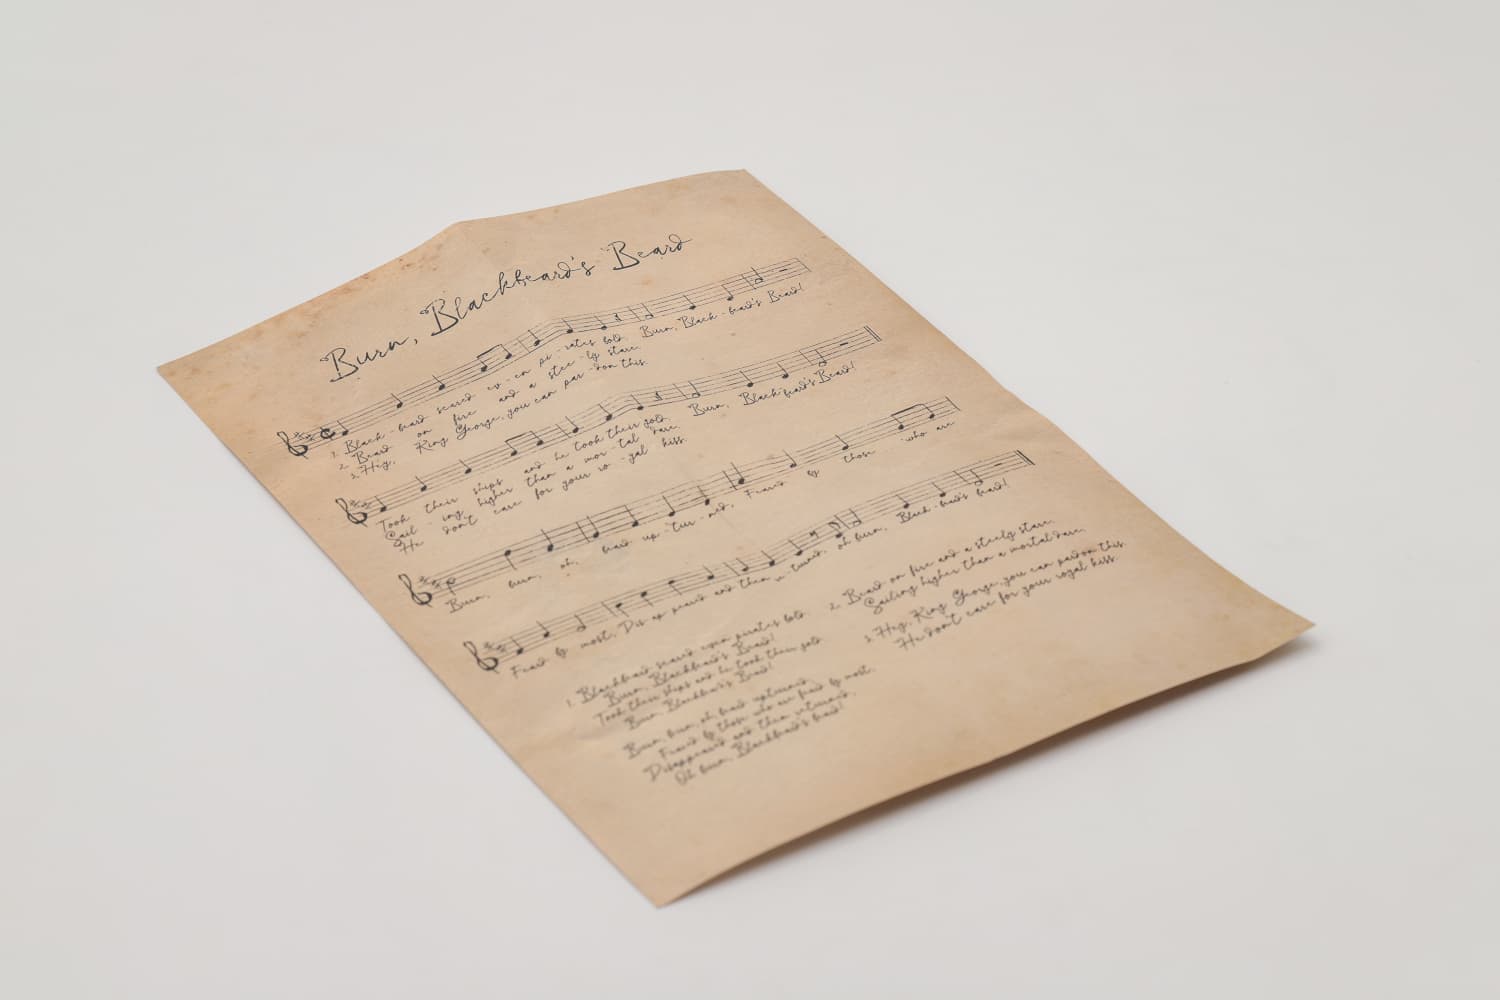 Burn, Blackbeard's Beard
1. Black - beard scared ev - en pi - rates bold. Burn, Black - beard's Beard!
2. Beard on fire and a stee - ly stare.
3. Hey, King George, you can par - don this.
Took their ships and he took their gold. Burn, Black - beard's Beard!
Sail - ing higher than a mor - tal dare.
He don't care for your ro - yal kiss.
Burn, burn, oh, beard up - tur - ned, Feared by those who are
Feared by most, Dis - ap - peared and then re - turned, oh burn, Black - beard's beard!
1. Blackbeard scared even pirates bold.
Burn, Blackbeard's Beard!
Took their ships and he took their gold.
Burn, Blackbeard's Beard!
Burn, burn, oh beard upturned,
Feared by those who are feared by most.
Disappeared and then returned,
Oh burn, Blackbeard's beard!
2. Beard on fire and a steely stare.
Sailing higher than a mortal dare.
3. Hey, King George, you can pardon this.
He don't care for your royal kiss.